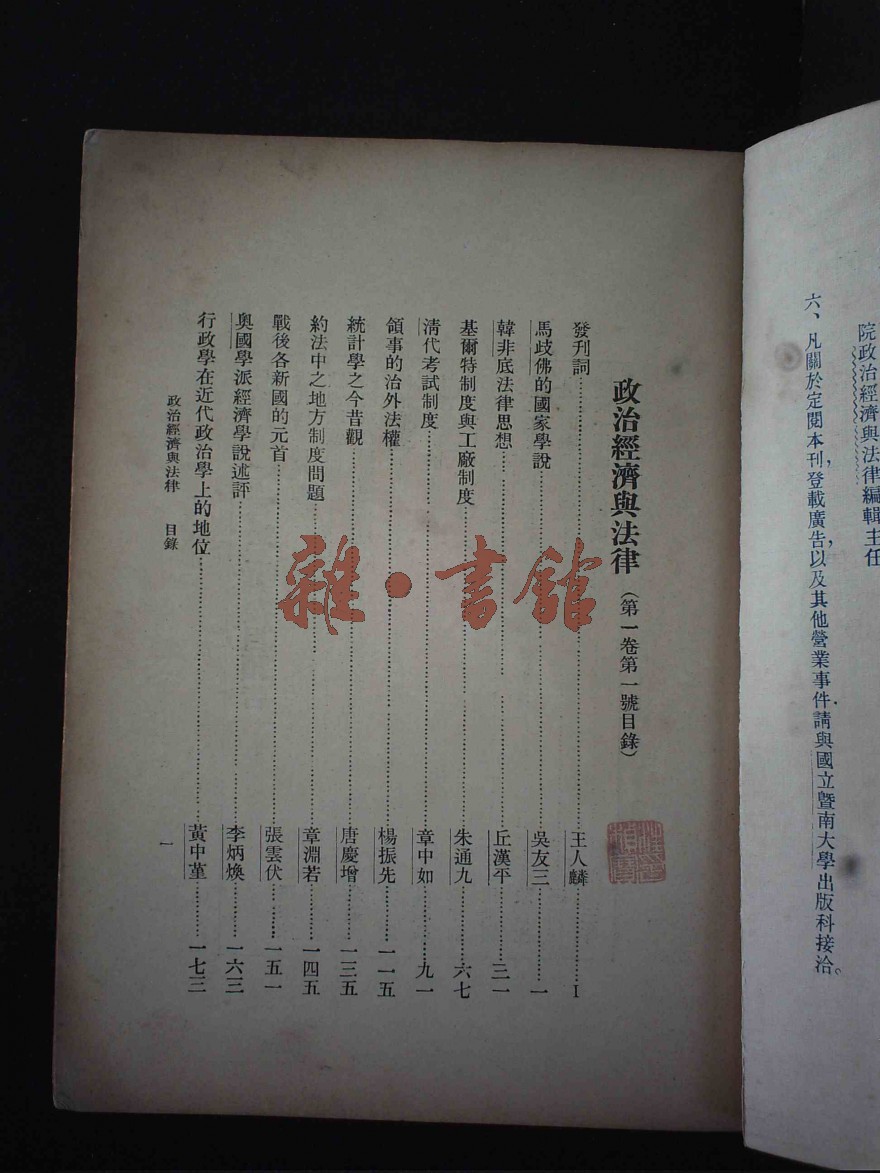 院政治經濟與法律編輯主任
六、凡關於定閱本刊登載廣告,以及其他營業事件,請與國立暨南大學出版科接洽。
政治經濟與法律(第一卷第一號目錄)
發刊詞……王人麟……I
馬歧佛的國家學說……吳友三……一
韓非底法律思想……丘漢平……三一
基爾特制度與工廠制度……朱通九……六七
清代考試制度……章中如……九一
領事的治外法權……楊振先……一一五
統計學之今昔觀……唐慶增……一三五
約法中之地方制度問題……章淵若……一四五
戰後各新國的元首……張雲伏……一五一
奧國學派經濟學說述評……李炳煥……一六三
行政學在近代政治學上的地位……黃中堇……一七三
政治經濟與法律 目錄
一
雜·書館